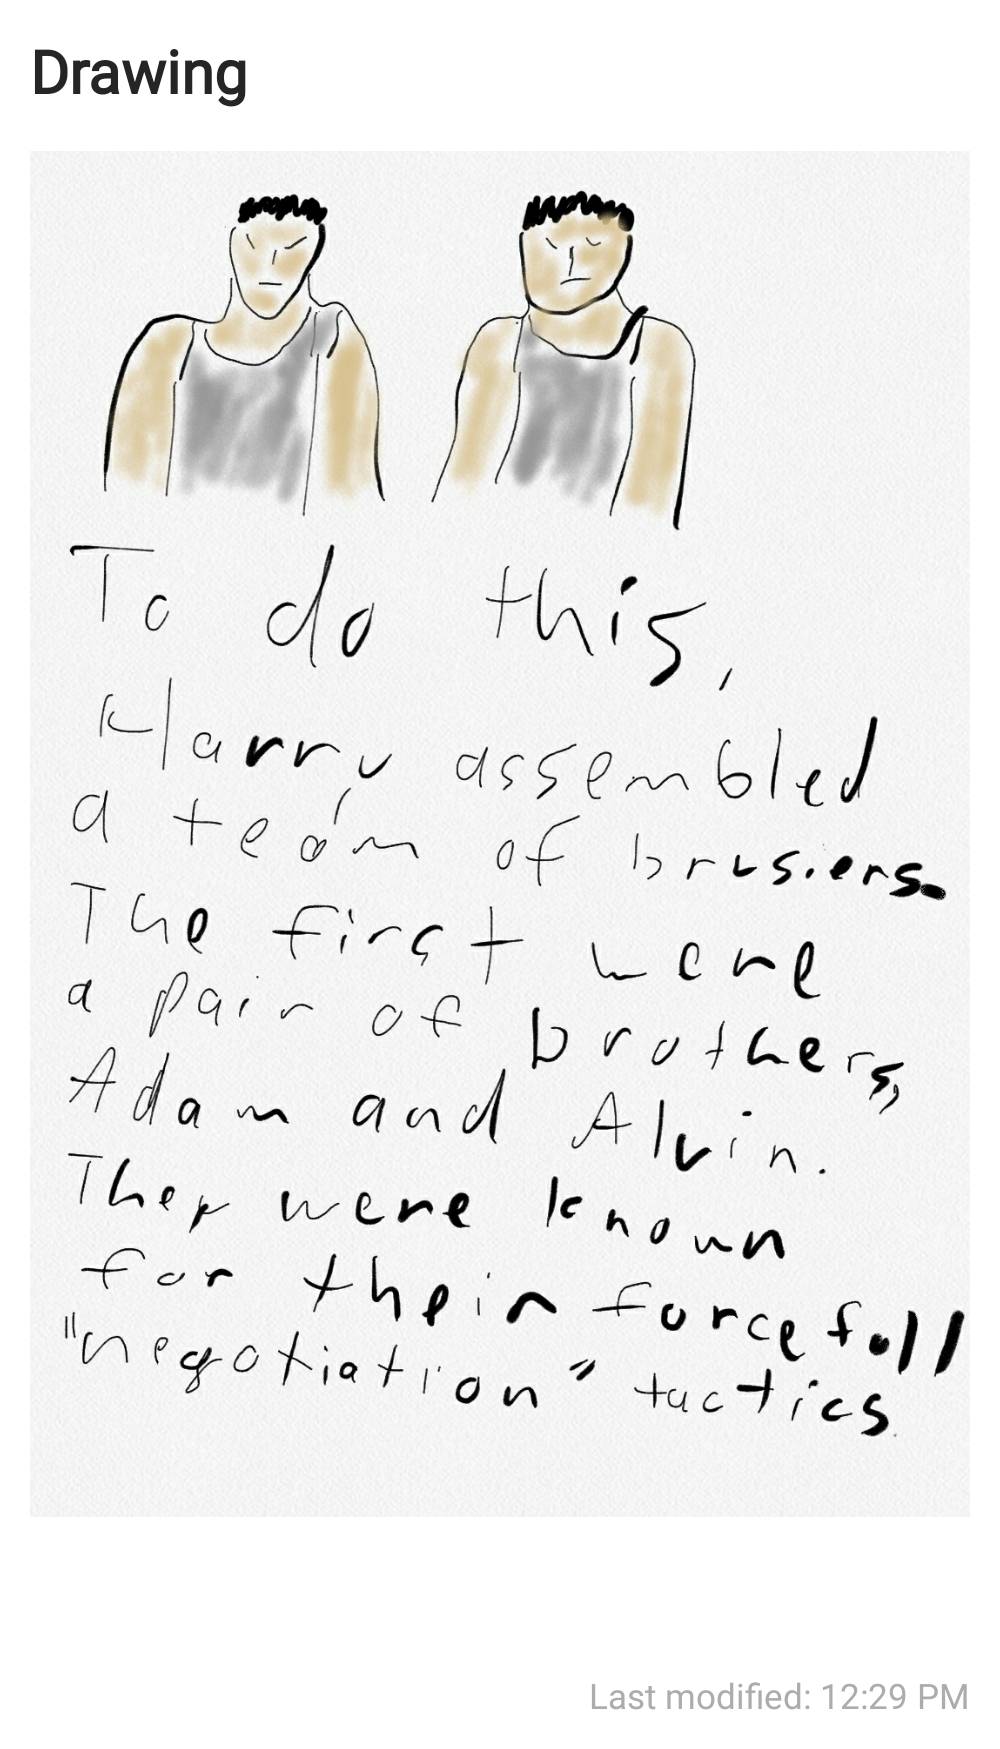 Drawing
To do this,
Harry assembled
a team of brusiers.
The first were
a pair of brothers,
Adam and Alvin.
They were known
for their forcefull
"negotiation" tactics.
Last modified: 12:29 PM